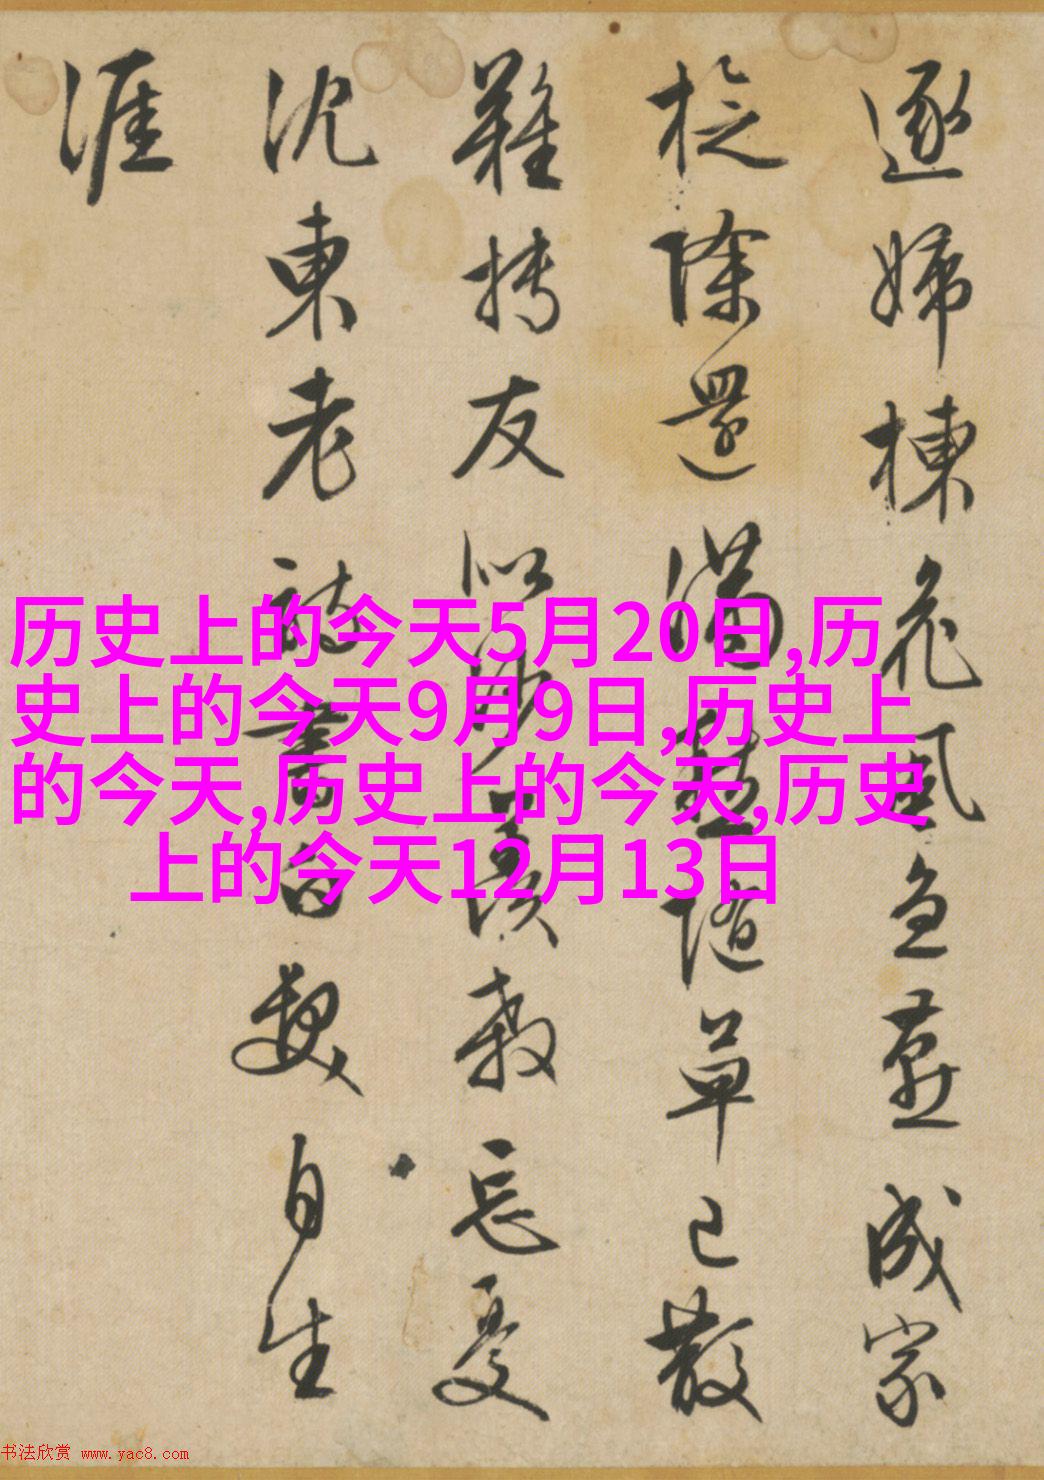 逐婦棟花風急成家
除還滿隨草已散
難友忘憂
沈東老詩書白髮自生
涯
历史上的今天5月20日,历
史上的今天9月9日,历史上
的今天,历史上的今天,历史
上的今天12月13日
书法欣赏 www.yac8.com